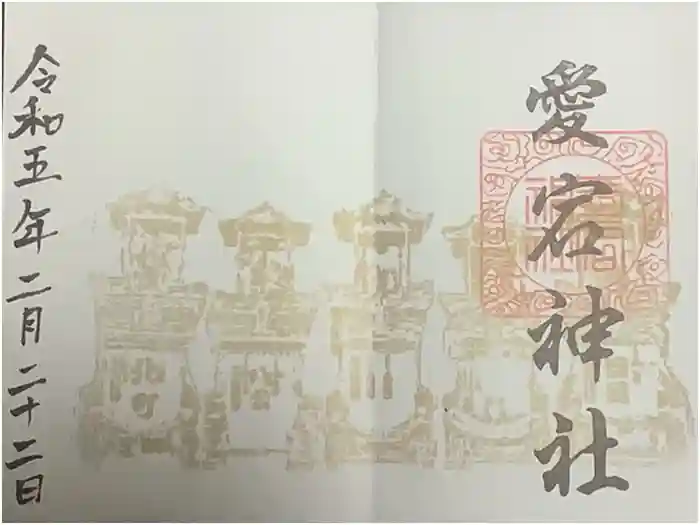 愛宕神社
令和五年二月二十二日
北町